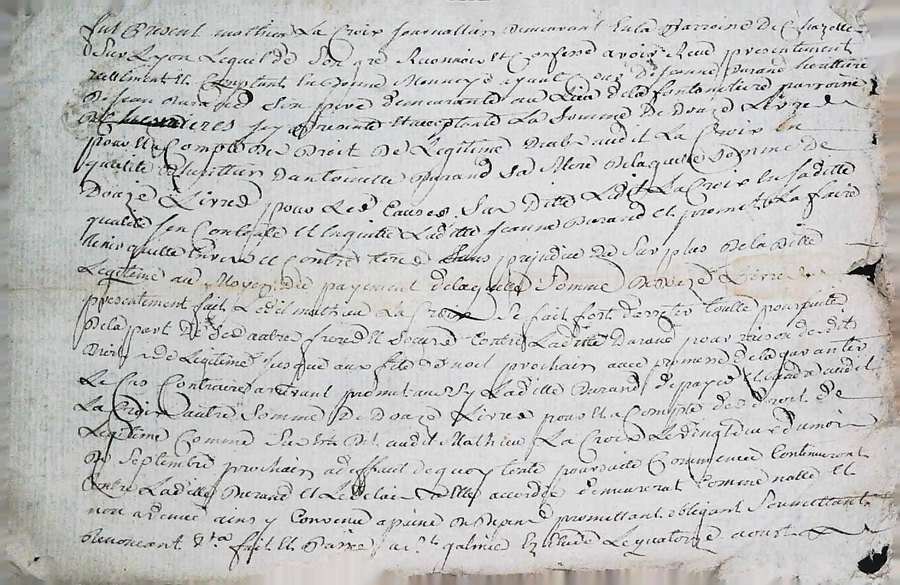 fut Present mathieu La Croix journallier demeurant en la Parroisse De Chazelle
Sur Lyon Lequel de Son gré Reconnoit et Confesse avoir Reçu presentement
reellement et Comptant en bonne Monnoye ayant Cour De Jeanne Durand heritiere
De Jean Durand Son pere demeurante au Lieu de la fontaniere parroisse
De icy presente et acceptante La Somme De Douze Livres
pour Et a Compte De Droit De Legitime audit La Croix en
qualité d'heritier Dantoinette Durand Sa Mere De laquelle Somme De
Douze Livres pour Les Causes Sus Ditte Ledit La Croix en Saditte
qualité Son Contente et en quitte Laditte Jeanne Durand et promet La faire
tenir quitte Envers et Contre tous Sans prejudice De Surplus De la Ditte
Legitime au Moyen du payement de laquelle Somme De Douze Livres
presentement fait Ledit mathieu La Croix Se fait fort darreter toutte poursuitte
De la part De Ses autres freres Et Soeurs Contre Laditte Durand pour raison desdits
Droits de Legitime Jusque aux fete De noel prochain avec promesse de len garantir
Le Cas Contraire arrivant promet aussy Laditte Durand de payer audit
La Croix autre Somme De Douze Livres pour Et a Compte des Droit de
Legitime Comme Sus Est Dit audit Mathieu La Croix Le vingt du mois
De Septembre prochain a deffaut de quoy toute poursuitte Commencée Continueront
Contre Laditte Durand et Le delai a Elle accordée demeurerat Comme nulle et
non avenue ainsy Convenu a peine De Depens promettant obligeant Soumettant
Renonceant &ta fait Et Passé a St galmie Etude Le quatorze aoust